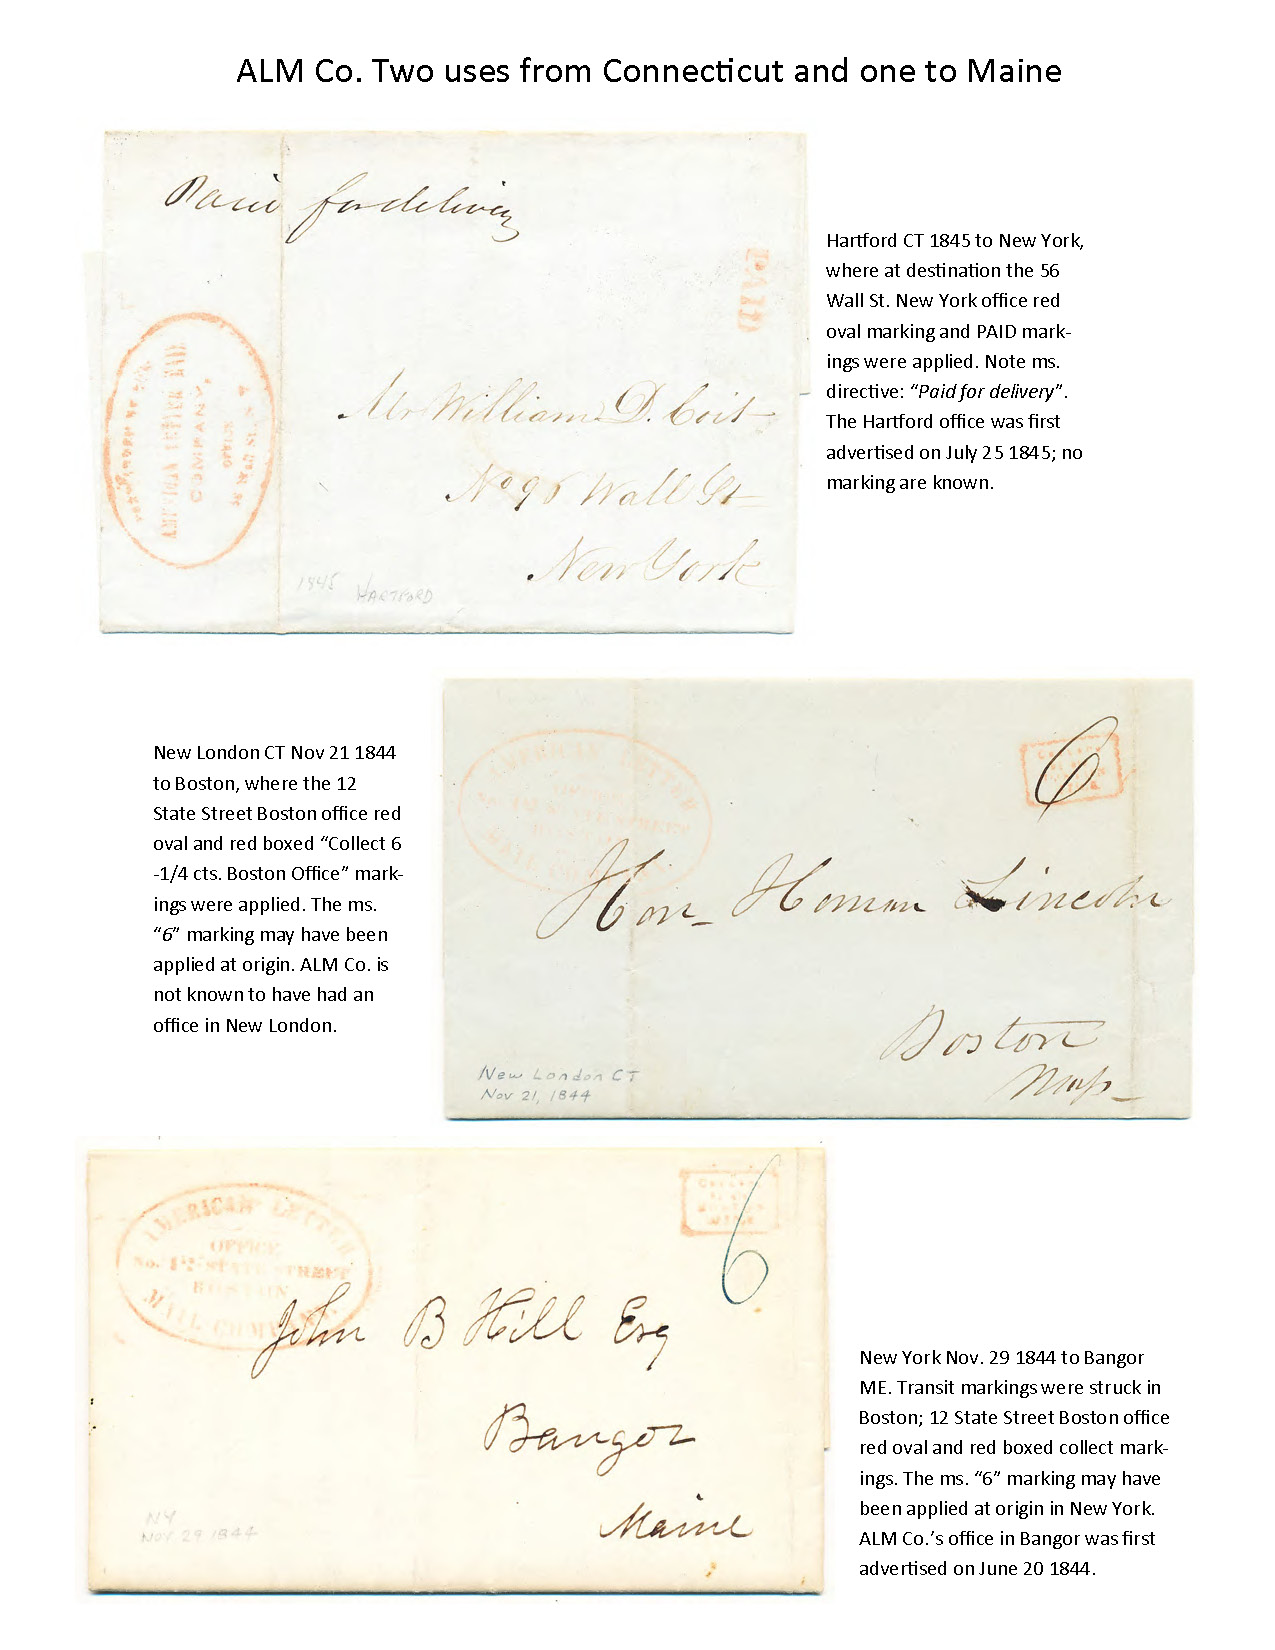 ALM Co. Two uses from Connecticut and one to Maine
Paid for delivery
PAID
AMERICAN LETTER MAIL
COMPANY,
OFFICE
56 Wall St. N.Y.
Mr William D. Coit
No 96 Wall St
New York
1845 HARTFORD
Hartford CT 1845 to New York,
where at destination the 56
Wall St. New York office red
oval marking and PAID mark-
ings were applied. Note ms.
directive: “Paid for delivery”.
The Hartford office was first
advertised on July 25 1845; no
marking are known.
New London CT Nov 21 1844
to Boston, where the 12
State Street Boston office red
oval and red boxed “Collect 6
-1/4 cts. Boston Office” mark-
ings were applied. The ms.
“6” marking may have been
applied at origin. ALM Co. is
not known to have had an
office in New London.
AMERICAN LETTER
OFFICE
No. 12 STATE STREET
BOSTON
MAIL COMPANY
6
Hon- Homan Lincoln
Boston
Mass-
New London CT
Nov 21, 1844
AMERICAN LETTER
OFFICE
No. 12 STATE STREET
BOSTON
MAIL COMPANY.
6
John B Hill Esq
Bangor
Maine
NY
Nov 29 1844
New York Nov. 29 1844 to Bangor
ME. Transit markings were struck in
Boston; 12 State Street Boston office
red oval and red boxed collect mark-
ings. The ms. “6” marking may have
been applied at origin in New York.
ALM Co.’s office in Bangor was first
advertised on June 20 1844.